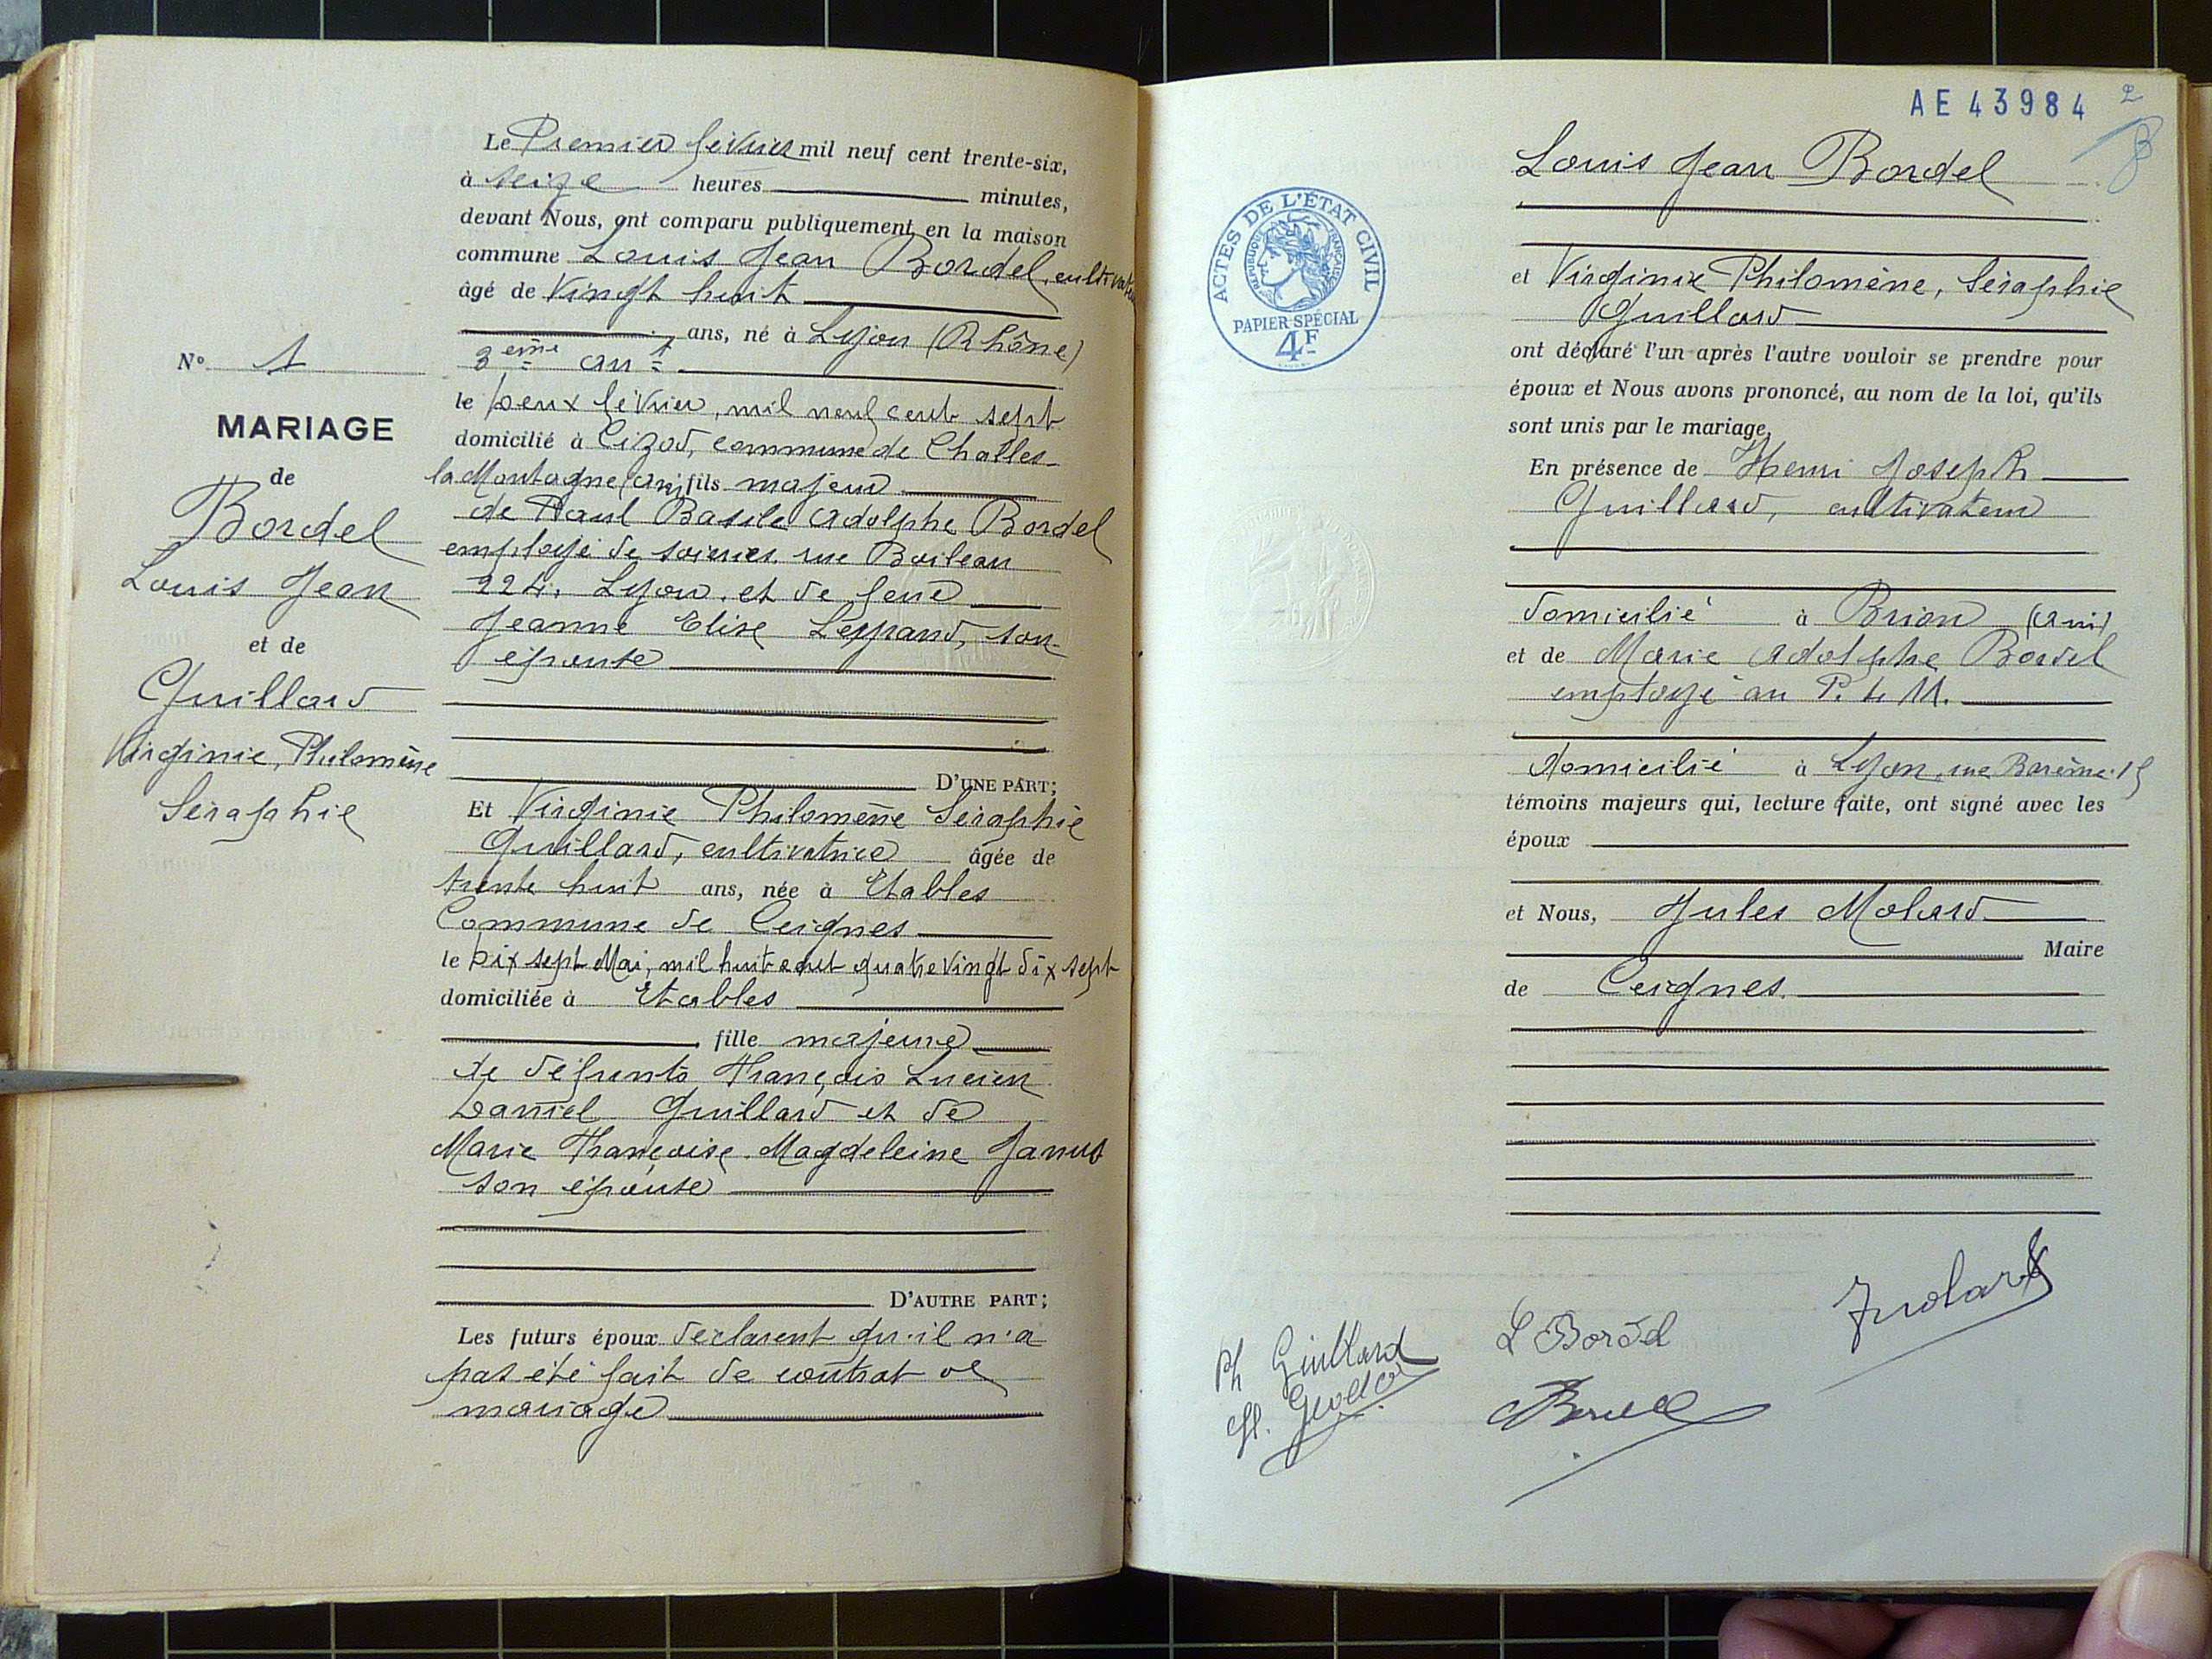 Le Premier février mil neuf cent trente-six,
à seize heures minutes,
devant Nous, ont comparu publiquement en la maison
commune Louis Jean Bordel, cultivateur
âgé de vingt huit
ans, né à Lyon (Rhône)
3ème arrt
le Deux février, mil neuf cent sept
domicilié à Cizod, commune de Challes-
la Montagne (Ain) fils majeur
de Paul Basile Adolphe Bordel
employé de soieries, rue Boileau
224, Lyon, et de feue
Jeanne Elise Legrand, son
épouse
D'UNE PART;
N° 1
MARIAGE
de
Bordel
Louis Jean
et de
Guillard
Virginie, Philomène
Séraphie
Et Virginie Philomène Séraphie
Guillard, cultivatrice âgée de
trente huit ans, née à Etables
Commune de Ceignes
le Dix sept Mai, mil huit cent quatre vingt dix sept
domiciliée à Etables
fille majeure
de défunts François Lucien
Daniel Guillard et de
Marie Françoise Magdeleine
son épouse
D'AUTRE PART;
Les futurs époux déclarent qu'il n'a
pas été fait de contrat de
mariage
AE 43984
2
Louis Jean Bordel
ACTES DE L'ÉTAT CIVIL
RÉPUBLIQUE FRANÇAISE
PAPIER SPÉCIAL
4F
et Virginie Philomène, Séraphie
Guillard
ont déclaré l'un après l'autre vouloir se prendre pour
époux et Nous avons prononcé, au nom de la loi, qu'ils
sont unis par le mariage,
En présence de Henri Joseph
Guillard, cultivateur
domicilié à Brion (Ain)
et de Marie Adolphe Bordel
employé au P. L. M.
domicilié à Lyon, rue Barème 15
témoins majeurs qui, lecture faite, ont signé avec les
époux
et Nous, Jules Molard
Maire
de Ceignes.
Jmolard
Ph Guillard
L Bordel